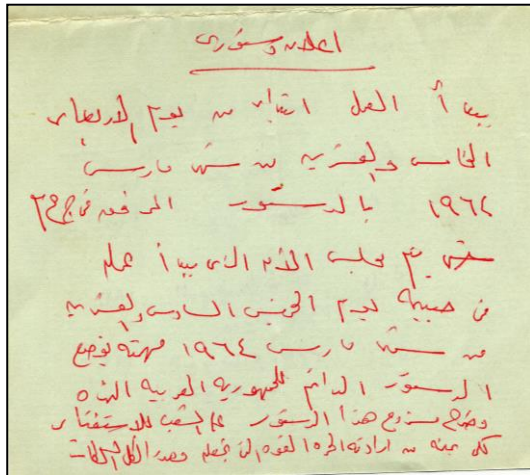 اعلان دستورى
يبدأ العمل ابتداء من يوم الاربعاء
الخامس والعشرين من شهر مارس
١٩٦٤ بالدستور المرفق
حتى يتم مجلس الأمة الذى يبدأ عمله
فى صبيحة يوم الخميس السادس والعشرين
من شهر مارس ١٩٦٤ مهمته بوضع
الدستور الدائم للجمهورية العربية المتحدة
وطرح مشروع هذا الدستور على الشعب للاستفتاء
لكى يمنحه من ارادته الحرة القوة التى تجعله مصدرا لكل السلطات